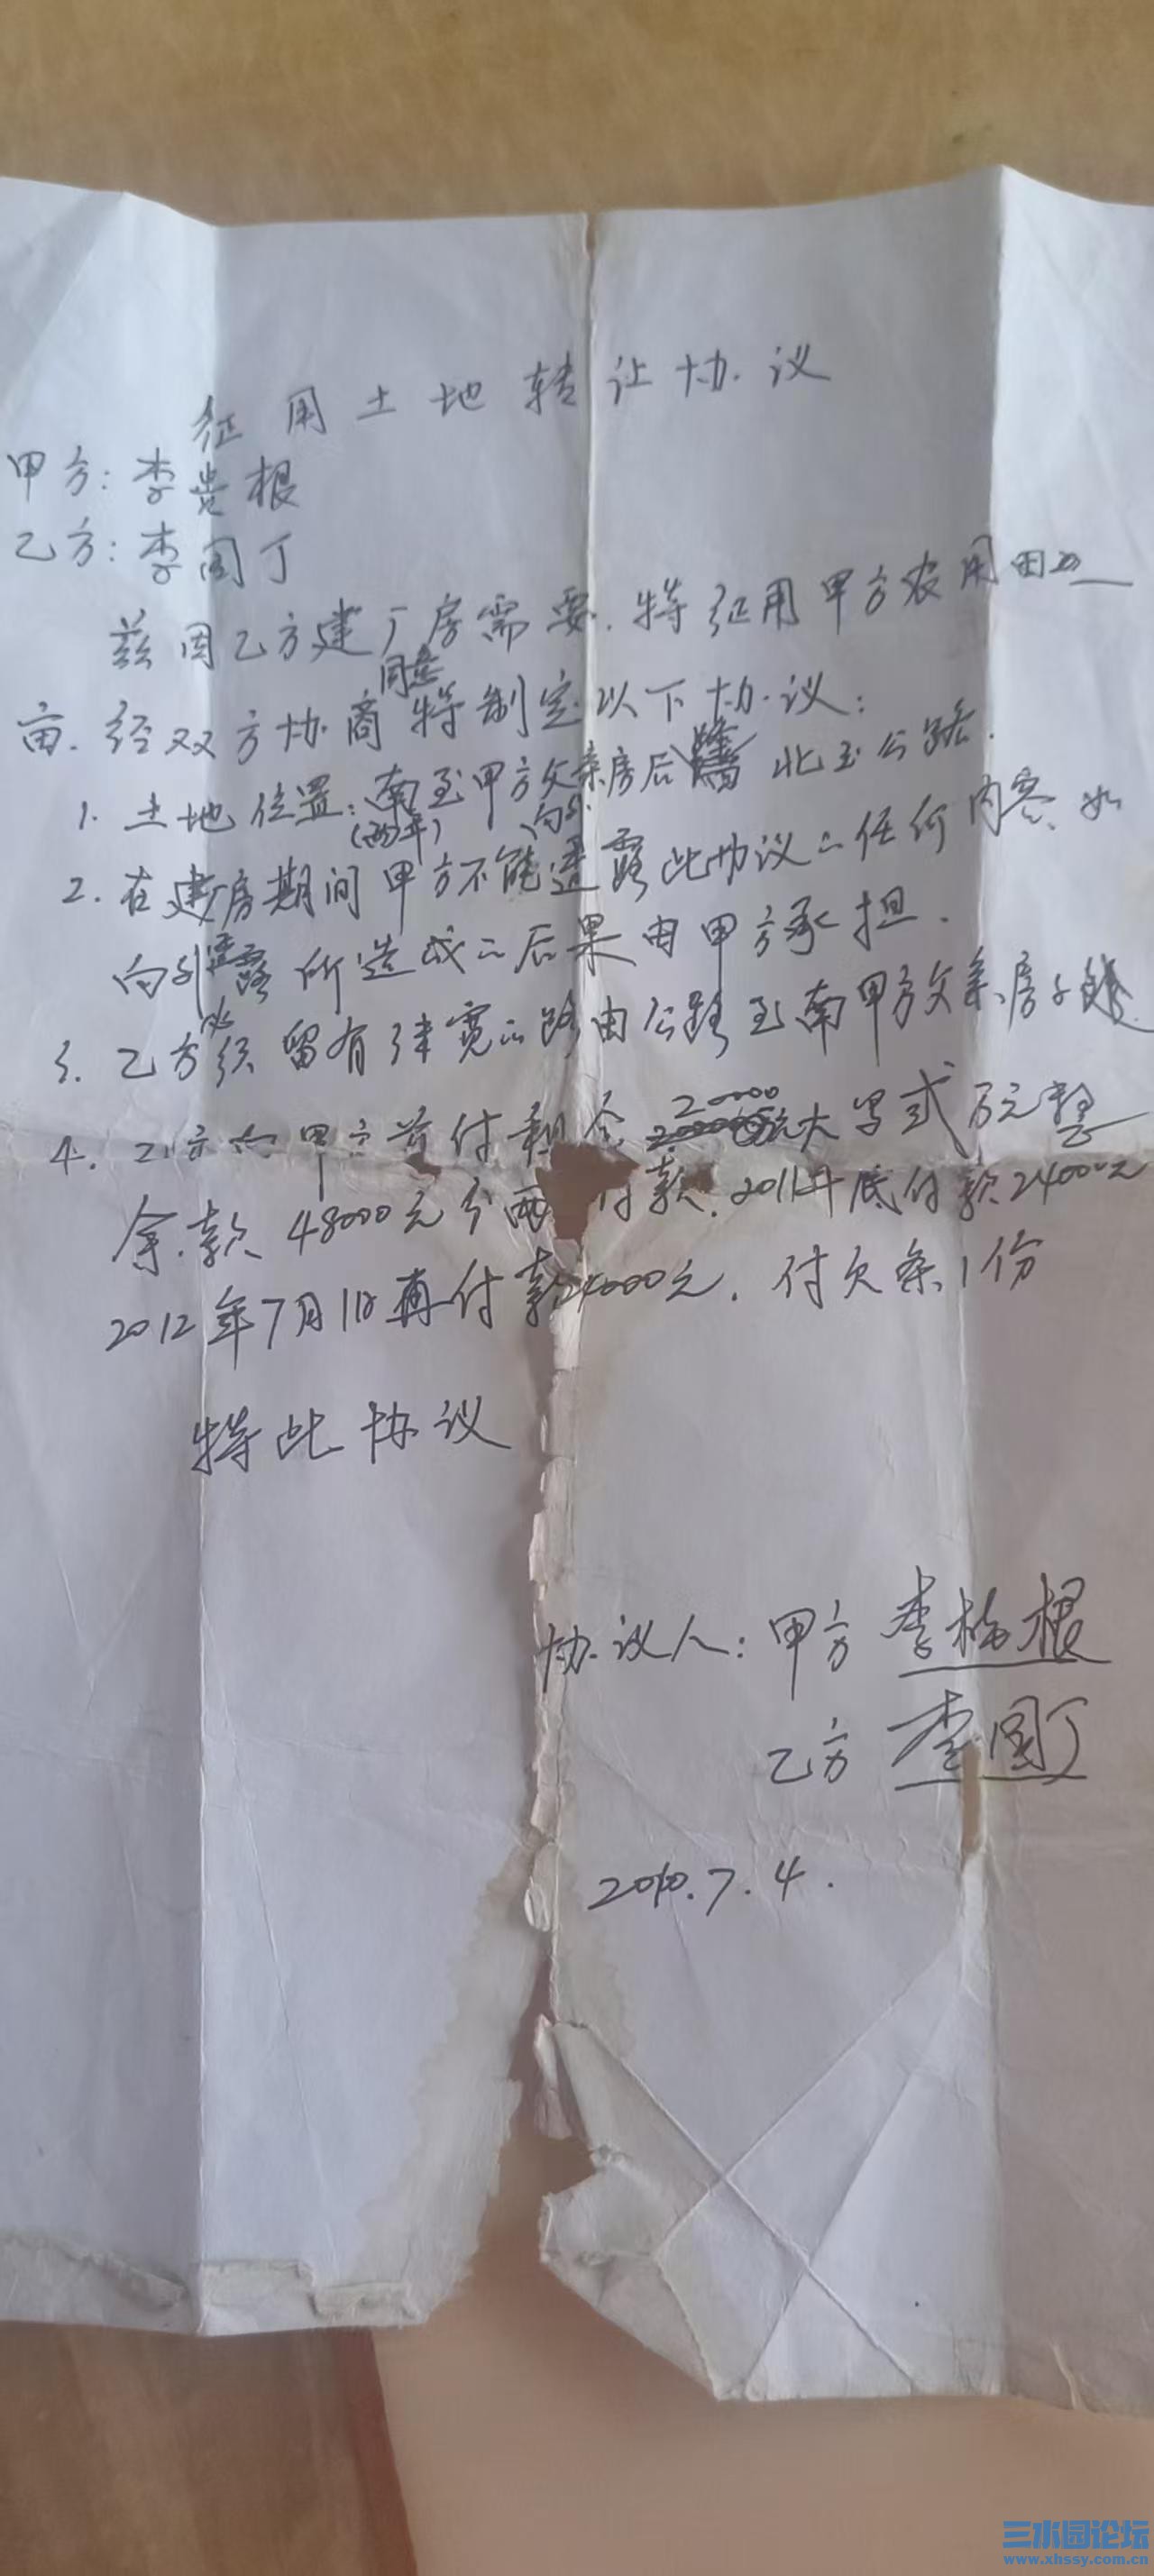 征用土地转让协议
甲方：李贵根
乙方：李国丁
兹因乙方建厂房需要.特征用甲方农用田
亩.经双方协商同意特制定以下协议：
1. 土地位置：南至甲方父亲房后 北至公路.
2. 在建房期间(两年)甲方不能向外透露此协议的任何内容.如
向外透露所造成的后果由甲方承担.
3. 乙方必须留有 宽的路由公路至南甲方父亲房子
4. 乙方向甲方首付租金20000元大写弍万元整
余款48000元分两 付款.2011年底付款24000元
2012年7月1日再付款24000元.付欠条1份
特此协议
协议人：甲方 李 根
乙方 李国丁
2010.7.4.
三水园论坛
www.xhssy.com.cn